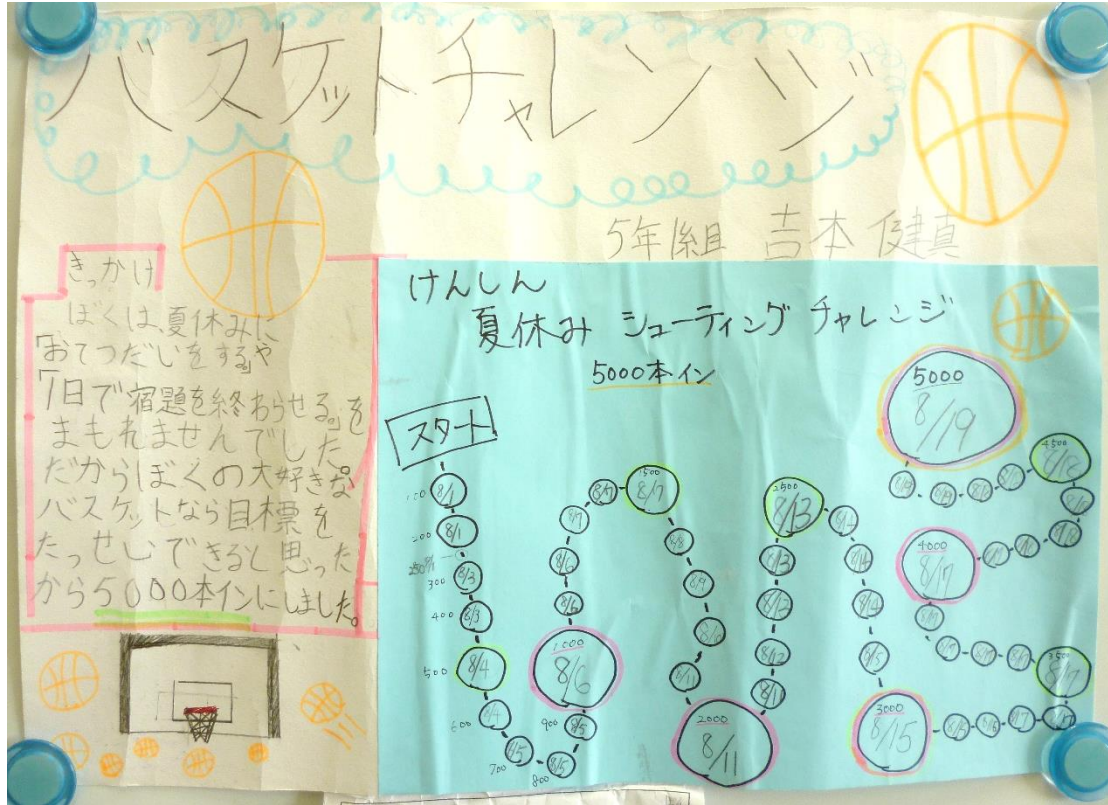 バスケットチャレンジ
5年1組 吉本健真
きっかけ
ぼくは、夏休みに
「おてつだいをする」や
「1日で宿題を終わらせる。」を
まもれませんでした。
だからぼくの大好きな
バスケットなら目標を
たっせいできると思った
から5000本インにしました。
けんしん
夏休み シューティング チャレンジ
5000本イン
スタート
100 8/1
200 8/1
300 8/3
400 8/3
500 8/4
600 8/4
700 8/5
800 8/5
900 8/5
1000 8/6
8/6
8/6
8/7
8/7
1500 8/7
8/8
8/9
8/10
8/11
2000 8/11
8/12
8/12
8/13
2500 8/13
8/14
8/14
8/14
3000 8/15
8/17
3500 8/17
4000 8/17
8/18
4500 8/18
5000 8/19